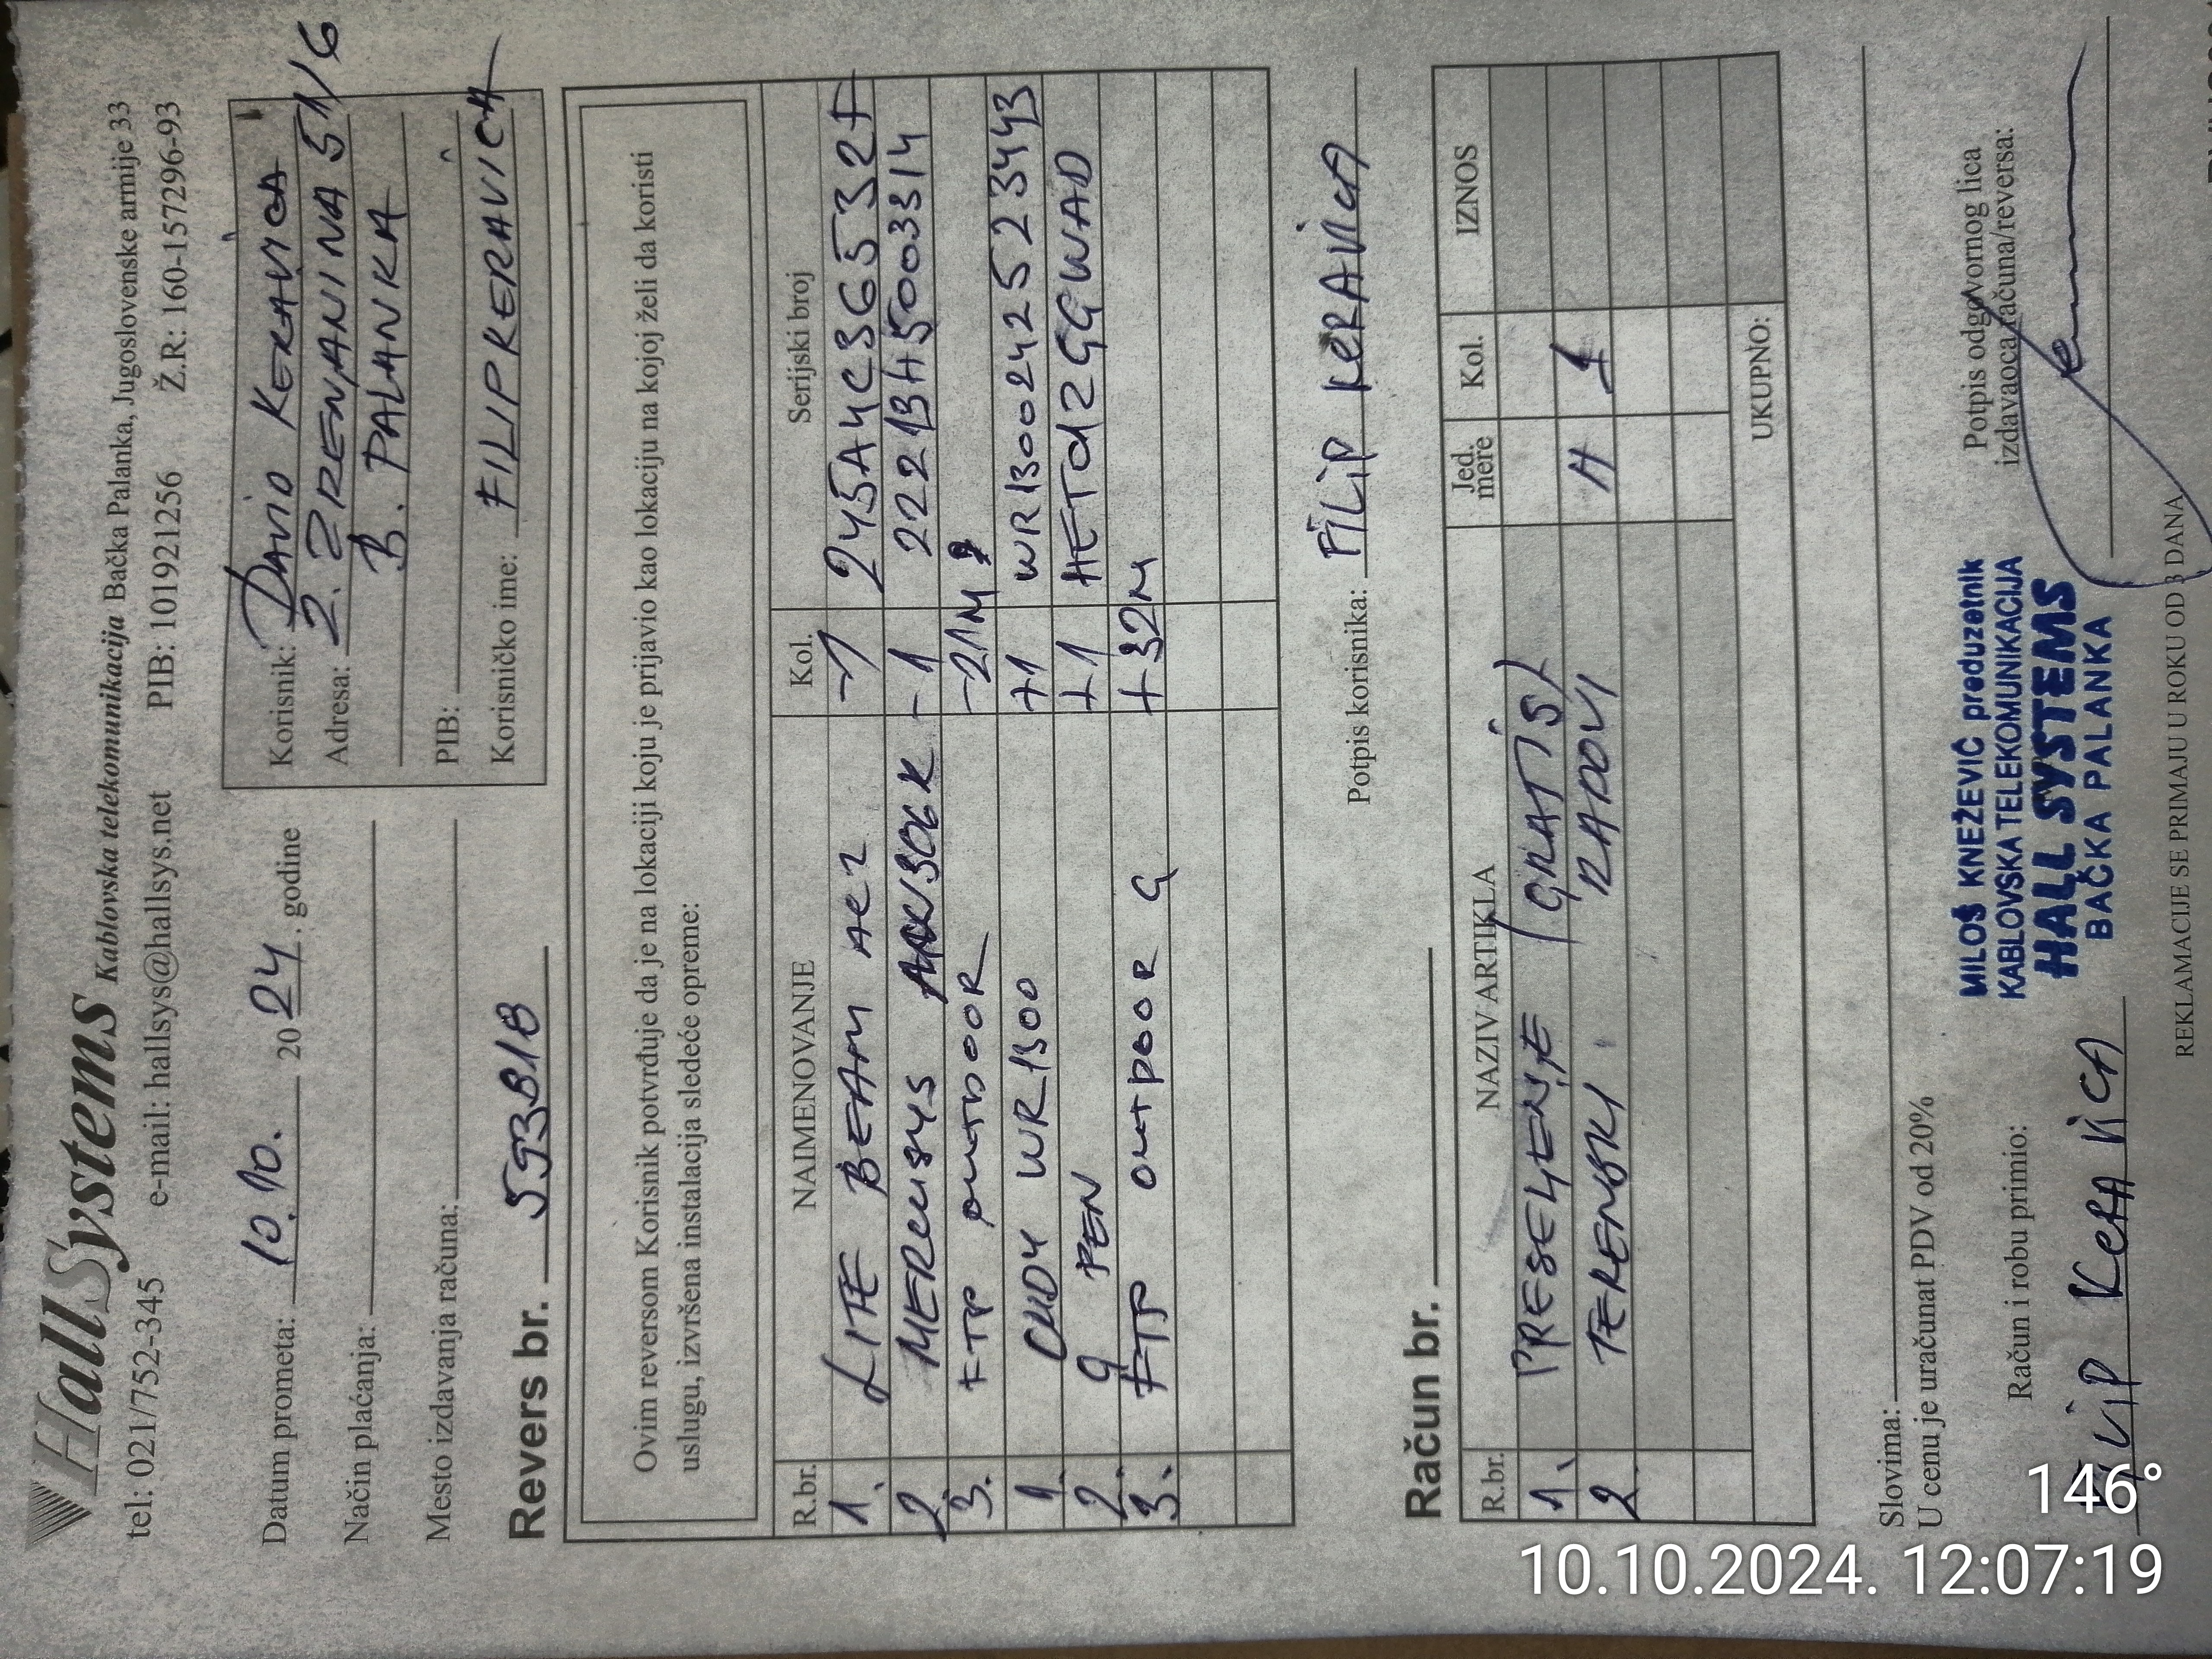 HallSystems Kablovska telekomunikacija Bačka Palanka, Jugoslovenske armije 33
tel: 021/752-345 e-mail: hallsys@hallsys.net PIB: 101921256 Ž.R: 160-157296-93
Datum prometa: 10.10. 2024. godine
Način plaćanja:
Mesto izdavanja računa:
Korisnik: DAVID KERAVICA
Adresa: 2. ZRENJANINA 51/6
B. PALANKA
PIB:
Korisničko ime: FILIPKERAVICA
Revers br. 593B1B
Ovim reversom Korisnik potvrđuje da je na lokaciji koju je prijavio kao lokaciju na kojoj želi da koristi
uslugu, izvršena instalacija sledeće opreme:
R.br. NAIMENOVANJE Kol. Serijski broj
1. LITE BEAM AC2 -1 245A4C3G6532F
2. MERCUSYS -1 2221BH5003314
3. FTP OUTDOOR -21M
1. CUDY WR1300 +1 WR1300242523443
2. G PEN +1 HETd2GGWAD
3. FTP OUTDOOR G +32M
Potpis korisnika: FILIP KERAVICA
Račun br.
R.br. NAZIV ARTIKLA Jed. mere Kol. IZNOS
1. PRESELENJE (GRATIS)
2. TERENSKI RADOVI H 1
UKUPNO:
Slovima:
U cenu je uračunat PDV od 20%
Račun i robu primio:
FILIP KERAVICA
MILOŠ KNEŽEVIĆ preduzetnik
KABLOVSKA TELEKOMUNIKACIJA
HALL SYSTEMS
BAČKA PALANKA
Potpis odgovornog lica
izdavaoca računa/reversa:
REKLAMACIJE SE PRIMAJU U ROKU OD 3 DANA
146°
10.10.2024. 12:07:19